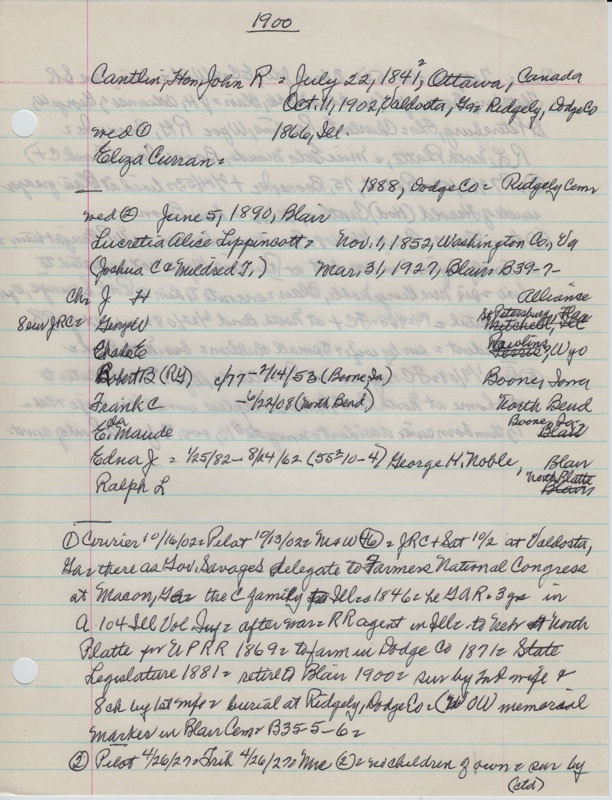 1900
Cantlin, Hon John R = July 22, 1841², Ottawa, Canada
Oct. 11, 1902, Valdosta, Ga = Ridgely, Dodge Co
med ① 1866, Ill.
Eliza Curran =
1888, Dodge Co = Ridgely Cem
med ② June 5, 1890, Blair
Lucretia Alice Lippincott = Nov. 1, 1852, Washington Co, Va
(Joshua C & Mildred T.) Mar. 31, 1927, Blair = B39-7-
Chr J H Alliance
8 sur JRC = George W St Petersburg, Fla Mitchell,
Chas E Rawlins, Wyo
Robert B (RY) c/77 - 2/14/53 (Boone, Ia) Boone, Iowa
Frank C - 6/22/08 (North Bend) North Bend
C. Ida Maude Boone, Ia Blair
Edna J = 1/25/82 - 8/24/62 (55²10-4) George H. Noble, Blair
Ralph L North Platte Blair
① Courier 10/16/02 = Pilot 10/13/02 = = JRC + Sat 10/2 at Valdosta,
Ga = there as Gov. Savage's delegate to Farmers National Congress
at Macon, Ga = the C family to Ill = 1846 = he GAR = 3 yrs in
A. 104 Ill Vol Inf = after war = RR agent in Ill = to Neb = North
Platte for UPRR 1869 = to farm in Dodge Co 1871 = State
Legislature 1881 = retired Blair 1900 = sur by 2nd wife &
8 ch by 1st wife = burial at Ridgely, Dodge Co = (WOW memorial
marker in Blair Cem = B35-5-6 =
② Pilot 4/26/27 = Trib 4/26/27 = Mrs C = no children of own = sur by
(ctd)